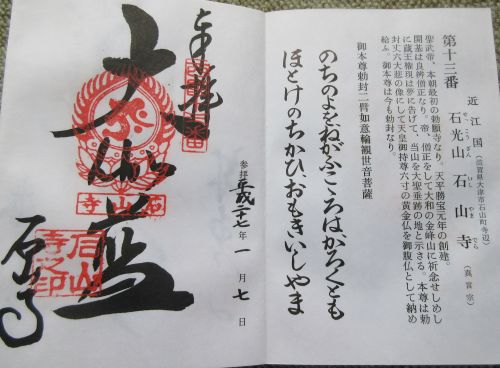 第十三番
近江国
(滋賀県大津市石山町寺辺)
石光山 石山寺
せっこうざん いしやまでら
(真言宗)
聖武帝、本朝最初の勅願寺なり。天平勝宝元年の創建。
開基は良辨僧正なり。帝、僧正をして大和の金峰山に祈念せしめし
に蔵王権現は夢に告げて、当山を大聖垂跡の地と示さる。本尊は勅
封丈六大悲の像にして天皇御持尊六寸の黄金仏を御腹仏として納め
給ふ。御本尊は今も勅封なり。
御本尊勅封二臂如意輪観世音菩薩
のちのよをねがふこゝろはかろくとも
ほとけのちかひ、おもきいしやま
参拝平成二十七年一月七日
奉拝
大伽藍
石山寺
石山寺
石山寺之印